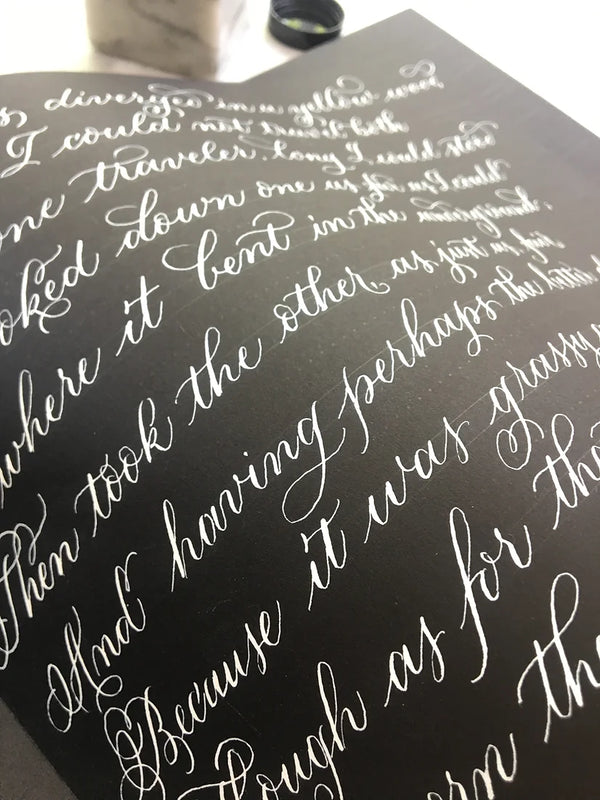 s, diverged in a yellow wood,
I could not travel both
one traveler, long I could stood
oked down one as far as I could
where it bent in the undergrowth;
Then took the other, as just as fair
And having perhaps the better
Because it was grassy
Though as for tha
orn the